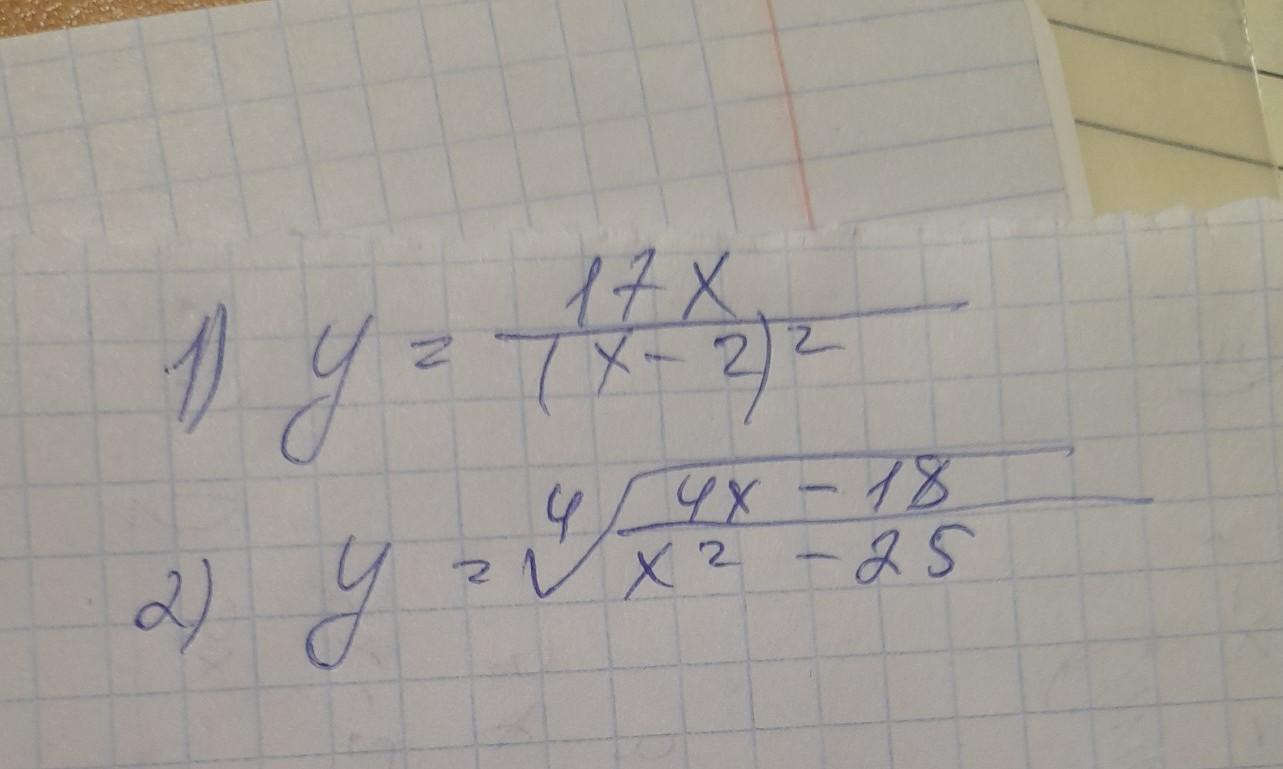 1) y = 17x / (x - 2)²
2) y = ⁴√((4x - 18) / (x² - 25))